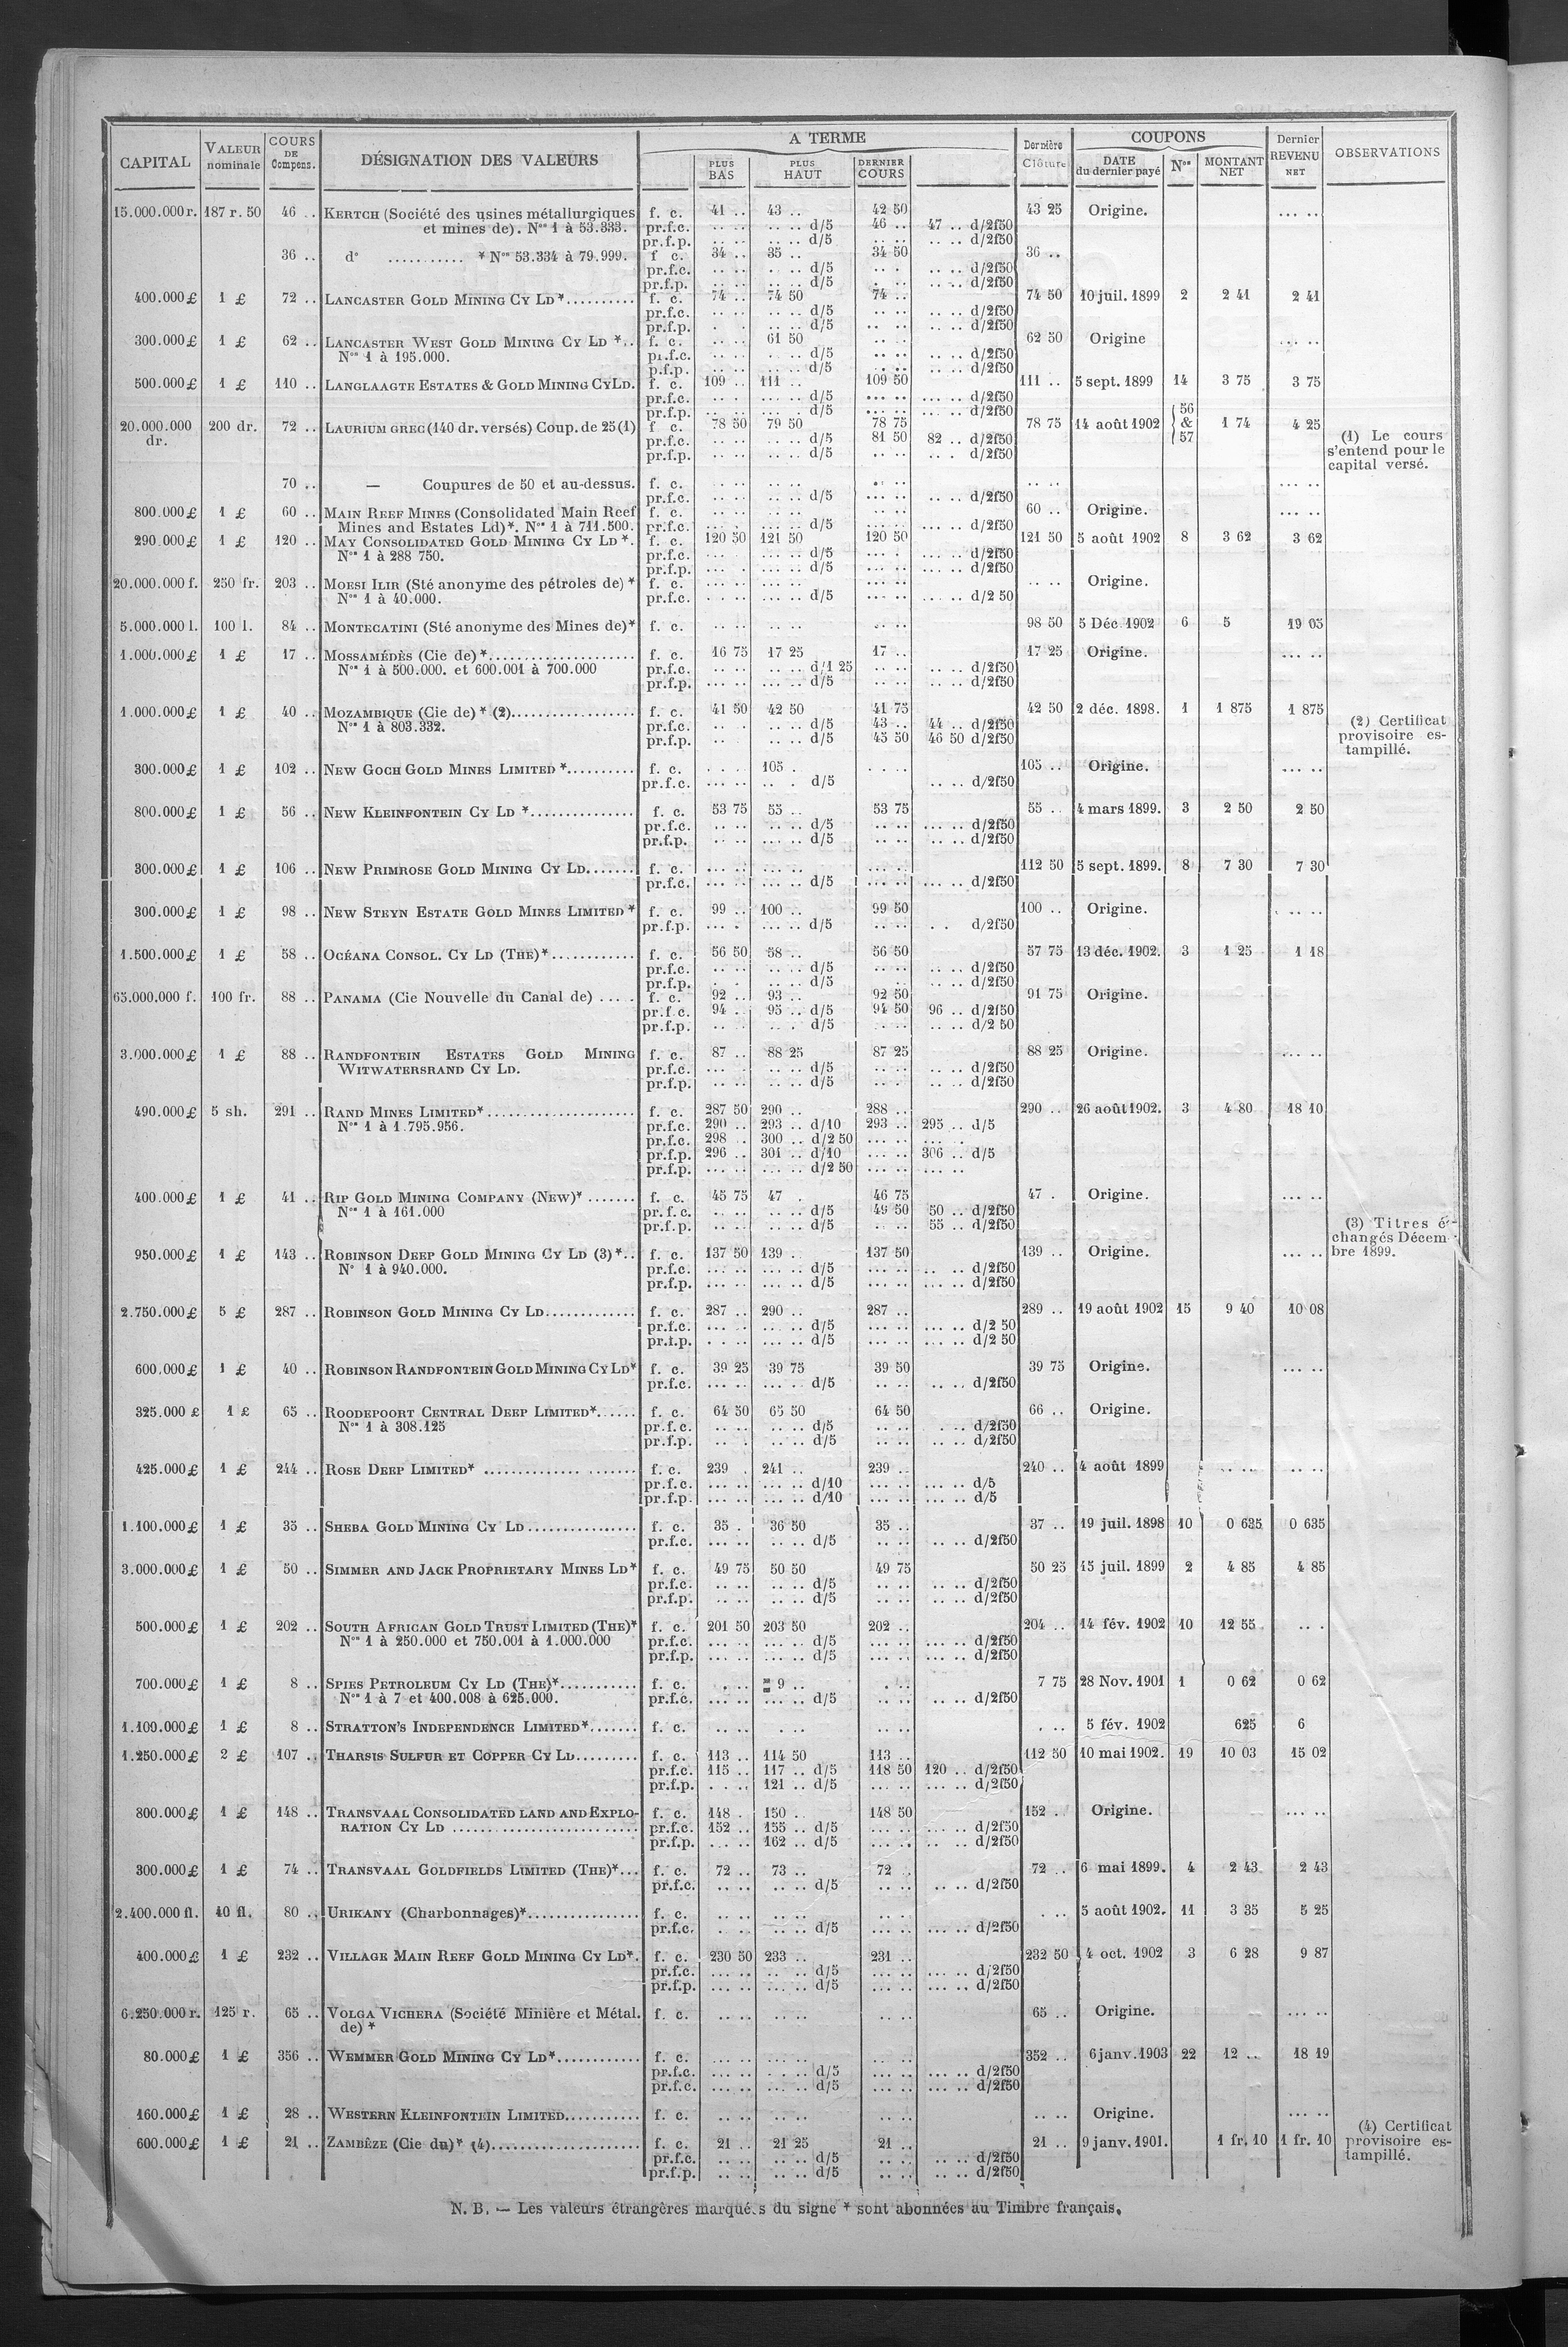 CAPITAL | VALEUR nominale | COURS DE Compens. | DÉSIGNATION DES VALEURS | A TERME | PLUS BAS | PLUS HAUT | DERNIER COURS | Dernière Clôture | COUPONS | DATE du dernier payé | Nos | MONTANT NET | Dernier REVENU NET | OBSERVATIONS
15.000.000 r. 187 r. 50 46 .. KERTCH (Société des usines métallurgiques f. c. 41 .. 43 .. 42 50 43 25 Origine. ... ..
et mines de). Nos 1 à 53.333. pr.f.c. .. .. .. .. d/5 46 .. 47 .. d/2f50
pr.f.p. .. .. .. .. d/5 .. .. .. .. d/2f50
36 .. do ........... * Nos 53.334 à 79.999. f c. 34 .. 35 .. 34 50 36 ..
pr.f.c. .. .. d/5 .. . .. .. d/2f50
pr.f.p. .. .. d/5 .. .. d/2f50
400.000 £ 1 £ 72 .. LANCASTER GOLD MINING CY LD *.......... f. c. 74 .. 74 50 74 .. 74 50 10 juil. 1899 2 2 41 2 41
pr.f.c. .. .. .. .. d/5 .. .. .. .. d/2f50
pr.f.p. . . .. .. d/5 .. .. .. .. d/2f50
300.000 £ 1 £ 62 .. LANCASTER WEST GOLD MINING CY LD *.. f. c. .. . 61 50 .. .. 62 50 Origine ... ..
Nos 1 à 195.000. pr.f.c. .. .. .. d/5 .. .. .. .. d/2f50
p.f.p. .. .. .. .. d/5 .. .. .. .. d/2f50
500.000 £ 1 £ 110 .. LANGLAAGTE ESTATES & GOLD MINING CY LD. f. c. 109 .. 111 .. 109 50 111 .. 5 sept. 1899 14 3 75 3 75
pr.f.c. .. .. .. .. d/5 ... .. ... .. d/2f50
pr.f.p. .. .. .. . d/5 ... .. ... .. d/2f50
20.000.000 200 dr. 72 .. LAURIUM GREC (140 dr. versés) Coup. de 25 (1) f c. 78 50 79 50 78 75 78 75 14 août 1902 56 & 57 1 74 4 25
dr. pr.f.c. .. .. .. .. d/5 81 50 82 .. d/2f50
pr.f.p. .. .. .. .. d/5 .. .. .. . d/2f50
(1) Le cours
s'entend pour le
capital versé.
70 .. — Coupures de 50 et au-dessus. f. c. .. .. .. .. .. .. .. .. ... ..
pr.f.c. .. .. .. .. d/5 ... .. .. .. d/2f50
800.000 £ 1 £ 60 .. MAIN REEF MINES (Consolidated Main Reef f. c. .. .. .. .. .. .. 60 .. Origine. ... ..
Mines and Estates Ld)*. Nos 1 à 711.500. pr.f.c. .. .. .. .. d/5 .. .. ... .. d/2f50
290.000 £ 1 £ 120 .. MAY CONSOLIDATED GOLD MINING CY LD *. f. c. 120 50 121 50 120 50 121 50 5 août 1902 8 3 62 3 62
Nos 1 à 288 750. pr.f.c. ... .. ... .. d/5 ... . ... .. d/2f50
pr.f.p. ... . ... .. d/5 .. .. ... .. d/2f50
20.000.000 f. 250 fr. 203 .. MOESI ILIR (Sté anonyme des pétroles de) * f. c. ... .. ... .. ... .. .. .. Origine.
Nos 1 à 40.000. pr.f.c. .. .. ... .. d/5 ... .. ... .. d/2 50
5.000.000 l. 100 l. 84 .. MONTECATINI (Sté anonyme des Mines de)* f. c. .. .. .. .. .. .. 98 50 5 Déc. 1902 6 5 19 05
1.000.000 £ 1 £ 17 .. MOSSAMÉDÈS (Cie de) *.................... f. c. 16 75 17 25 17 .. 17 25 Origine. ... ..
Nos 1 à 500.000. et 600.001 à 700.000 pr.f.c. ... .. ... .. d/1 25 .. .. .. .. d/2f50
pr.f.p. ... .. ... .. d/5 .. .. .. .. d/2f50
1.000.000 £ 1 £ 40 .. MOZAMBIQUE (Cie de) * (2)................. f. c. 41 50 42 50 41 75 42 50 2 déc. 1898. 1 1 875 1 875
Nos 1 à 803.332. pr.f.c. .. . .. .. d/5 43 .. 44 .. d/2f50
pr.f.p. .. .. .. .. d/5 45 50 46 50 d/2f50
(2) Certificat
provisoire es-
tampillé.
300.000 £ 1 £ 102 .. NEW GOCH GOLD MINES LIMITED *.......... f. c. . . . 105 . . . .. 105 .. Origine. ... ..
pr.f.c. ... .. .. . d/5 .. .. d/2f50
800.000 £ 1 £ 56 .. NEW KLEINFONTEIN CY LD *............... f. c. 53 75 55 .. 53 75 55 .. 4 mars 1899. 3 2 50 2 50
pr.f.c. .. .. .. .. d/5 .. .. ... .. d/2f50
pr.f.p. .. .. .. .. d/5 .. .. .. .. d/2f50
300.000 £ 1 £ 106 .. NEW PRIMROSE GOLD MINING CY LD....... f. c. ... .. ... .. ... .. 112 50 5 sept. 1899. 8 7 30 7 30
pr.f.c. ... .. ... .. d/5 ... .. ... .. d/2f50
300.000 £ 1 £ 98 .. NEW STEYN ESTATE GOLD MINES LIMITED * f. c. 99 .. 100 .. 99 50 100 .. Origine. . .. ..
pr.f.p. ... . ... .. d/5 .. .. . . d/2f50
1.500.000 £ 1 £ 58 .. OCÉANA CONSOL. CY LD (THE)*............ f. c. 56 50 58 .. 56 50 57 75 13 déc. 1902. 3 1 25 1 18
pr.f.c. .. .. .. .. d/5 .. .. .. .. d/2f50
pr.f.p. . . .. .. d/5 .. .. d/2f50
65.000.000 f. 100 fr. 88 .. PANAMA (Cie Nouvelle du Canal de) ..... f. c. 92 .. 93 .. 92 50 91 75 Origine.
pr.f c. 94 .. 95 .. d/5 94 50 96 .. d/2f50
pr.f.p. .. .. .. . d/5 .. .. .. .. d/2 50
3.000.000 £ 1 £ 88 .. RANDFONTEIN ESTATES GOLD MINING f. c. 87 .. 88 25 87 25 88 25 Origine. ... ..
WITWATERSRAND CY LD. pr.f.c. ... .. .. d/5 .. .. .. .. d/2f50
pr.f.p. .. .. .. .. d/5 .. .. .. .. d/2f50
490.000 £ 5 sh. 291 .. RAND MINES LIMITED*..................... f. c. 287 50 290 .. 288 .. 290 .. 26 août 1902. 3 4 80 18 10
Nos 1 à 1.795.956. pr.f.c. 290 .. 293 .. d/10 293 .. 295 .. d/5
pr.f.c. 298 .. 300 .. d/2 50 ... .. ... .
pr.f.p. 296 .. 301 .. d/10 ... .. 306 .. d/5
pr.f.p. ... .. ... .. d/2 50 ... .. ... ..
400.000 £ 1 £ 41 .. RIP GOLD MINING COMPANY (NEW)* ....... f. c. 45 75 47 . 46 75 47 . Origine. ... ..
Nos 1 à 161.000 pr.f.c. .. .. .. .. d/5 49 50 50 .. d/2f50
pr.f.p. .. .. .. .. d/5 .. .. 55 .. d/2f50
(3) Titres é-
changés Décem-
bre 1899.
950.000 £ 1 £ 143 .. ROBINSON DEEP GOLD MINING CY LD (3)*.. f. c. 137 50 139 .. 137 50 139 .. Origine. ... ..
No 1 à 940.000. pr.f.c. ... .. ... .. d/5 ... .. .. .. d/2f50
pr.f.p. ... .. ... .. d/5 ... .. ... .. d/2f50
2.750.000 £ 5 £ 287 .. ROBINSON GOLD MINING CY LD............. f. c. 287 .. 290 .. 287 .. 289 .. 19 août 1902 15 9 40 10 08
pr.f.c. ... .. ... .. d/5 ... .. ... .. d/2 50
pr.t.p. . . .. ... .. d/5 ... .. ... .. d/2 50
600.000 £ 1 £ 40 .. ROBINSON RANDFONTEIN GOLD MINING CY LD* f. c. 39 25 39 75 39 50 39 75 Origine. ... ..
pr.f.c. ... .. ... .. d/5 .. .. .. .. d/2f50
325.000 £ 1 £ 65 .. ROODEPOORT CENTRAL DEEP LIMITED*...... f. c. 64 50 65 50 64 50 66 .. Origine.
Nos 1 à 308.125 pr.f.c. .. .. .. .. d/5 .. .. . .. d/2f50
pr.f.p. .. . .. .. d/5 .. .. .. .. d/2f50
425.000 £ 1 £ 244 .. ROSE DEEP LIMITED* .............. ....... f. c. 239 . 241 .. 239 .. 240 .. 4 août 1899 .. .. .. ..
pr.f.c. ... .. ... .. d/10 ... .. ... .. d/5
pr.f.p. ... .. ... .. d/10 ... .. ... .. d/5
1.100.000 £ 1 £ 35 .. SHEBA GOLD MINING CY LD................ f. c. 35 . 36 50 35 .. 37 .. 19 juil. 1898 10 0 635 0 635
pr.f.c. ... .. .. .. d/5 .. .. .. .. d/2f50
3.000.000 £ 1 £ 50 .. SIMMER AND JACK PROPRIETARY MINES LD* f. c. 49 75 50 50 49 75 50 25 15 juil. 1899 2 4 85 4 85
pr.f.c. .. .. .. .. d/5 .. .. .. .. d/2f50
pr.f.p. .. .. .. .. d/5 .. .. .. .. d/2f50
500.000 £ 1 £ 202 .. SOUTH AFRICAN GOLD TRUST LIMITED (THE)* f. c. 201 50 203 50 202 .. 204 .. 14 fév. 1902 10 12 55 .. .
Nos 1 à 250.000 et 750.001 à 1.000.000 pr.f.c. ... .. ... .. d/5 ... .. ... .. d/2f50
pr.f.p. ... .. ... .. d/5 ... .. ... .. d/2f50
700.000 £ 1 £ 8 .. SPIES PETROLEUM CY LD (THE)*........... f. c. . .. 9 .. . .. 7 75 28 Nov. 1901 1 0 62 0 62
Nos 1 à 7 et 400.008 à 625.000. pr.f.c. ... .. ... .. d/5 .. .. .. .. d/2f50
1.100.000 £ 1 £ 8 .. STRATTON'S INDEPENDENCE LIMITED*....... f. c. .. .. . .. .. .. . .. 5 fév. 1902 625 6
1.250.000 £ 2 £ 107 .. THARSIS SULFUR ET COPPER CY LD......... f. c. 113 .. 114 50 113 .. 112 50 10 mai 1902. 19 10 03 15 02
pr.f.c. 115 .. 117 .. d/5 118 50 120 .. d/2f50
pr.f.p. . . .. 121 .. d/5 ... .. ... .. d/2f50
800.000 £ 1 £ 148 .. TRANSVAAL CONSOLIDATED LAND AND EXPLO- f. c. 148 . 150 .. 148 50 152 .. Origine. ... ..
RATION CY LD .......................... pr.f.c. 152 .. 155 .. d/5 ... .. ... .. d/2f50
pr.f.p. ... .. 162 .. d/5 ... .. .. .. d/2f50
300.000 £ 1 £ 74 .. TRANSVAAL GOLDFIELDS LIMITED (THE)*... f. c. 72 .. 73 .. 72 .. 72 .. 6 mai 1899. 4 2 43 2 43
pr.f.c. .. .. .. .. d/5 .. .. .. .. d/2f50
2.400.000 fl. 40 fl. 80 .. URIKANY (Charbonnages)*................ f. c. .. .. .. .. .. .. . .. 5 août 1902. 11 3 35 5 25
pr.f.c. . .. .. .. d/5 .. .. ... .. d/2f50
400.000 £ 1 £ 232 .. VILLAGE MAIN REEF GOLD MINING CY LD*. f. c. 230 50 233 .. 231 .. 232 50 4 oct. 1902 3 6 28 9 87
pr.f.c. ... .. .. .. d/5 ... .. ... .. d/2f50
pr.f.p. ... .. ... .. d/5 ... .. ... .. d/2f50
6.250.000 r. 125 r. 65 .. VOLGA VICHERA (Société Minière et Métal. f. c. .. .. .. .. .. .. 65 .. Origine. ... ..
de) *
80.000 £ 1 £ 356 .. WEMMER GOLD MINING CY LD*............ f. c. ... .. ... .. .. .. 352 .. 6 janv. 1903 22 12 .. 18 19
pr.f.c. ... .. . . .. d/5 ... .. ... .. d/2f50
pr.f.c. ... .. ... .. d/5 ... .. ... .. d/2f50
160.000 £ 1 £ 28 .. WESTERN KLEINFONTEIN LIMITED........... f. c. .. .. .. .. .. .. .. .. Origine. ... ..
600.000 £ 1 £ 21 .. ZAMBÈZE (Cie du)* (4)..................... f. c. 21 .. 21 25 21 .. 21 .. 9 janv. 1901. 1 fr. 10 1 fr. 10
pr.f.c. .. .. .. .. d/5 .. .. .. .. d/2f50
pr.f.p. .. .. .. .. d/5 .. .. .. .. d/2f50
(4) Certificat
provisoire es-
tampillé.
N. B. — Les valeurs étrangères marqués du signe * sont abonnées au Timbre français.